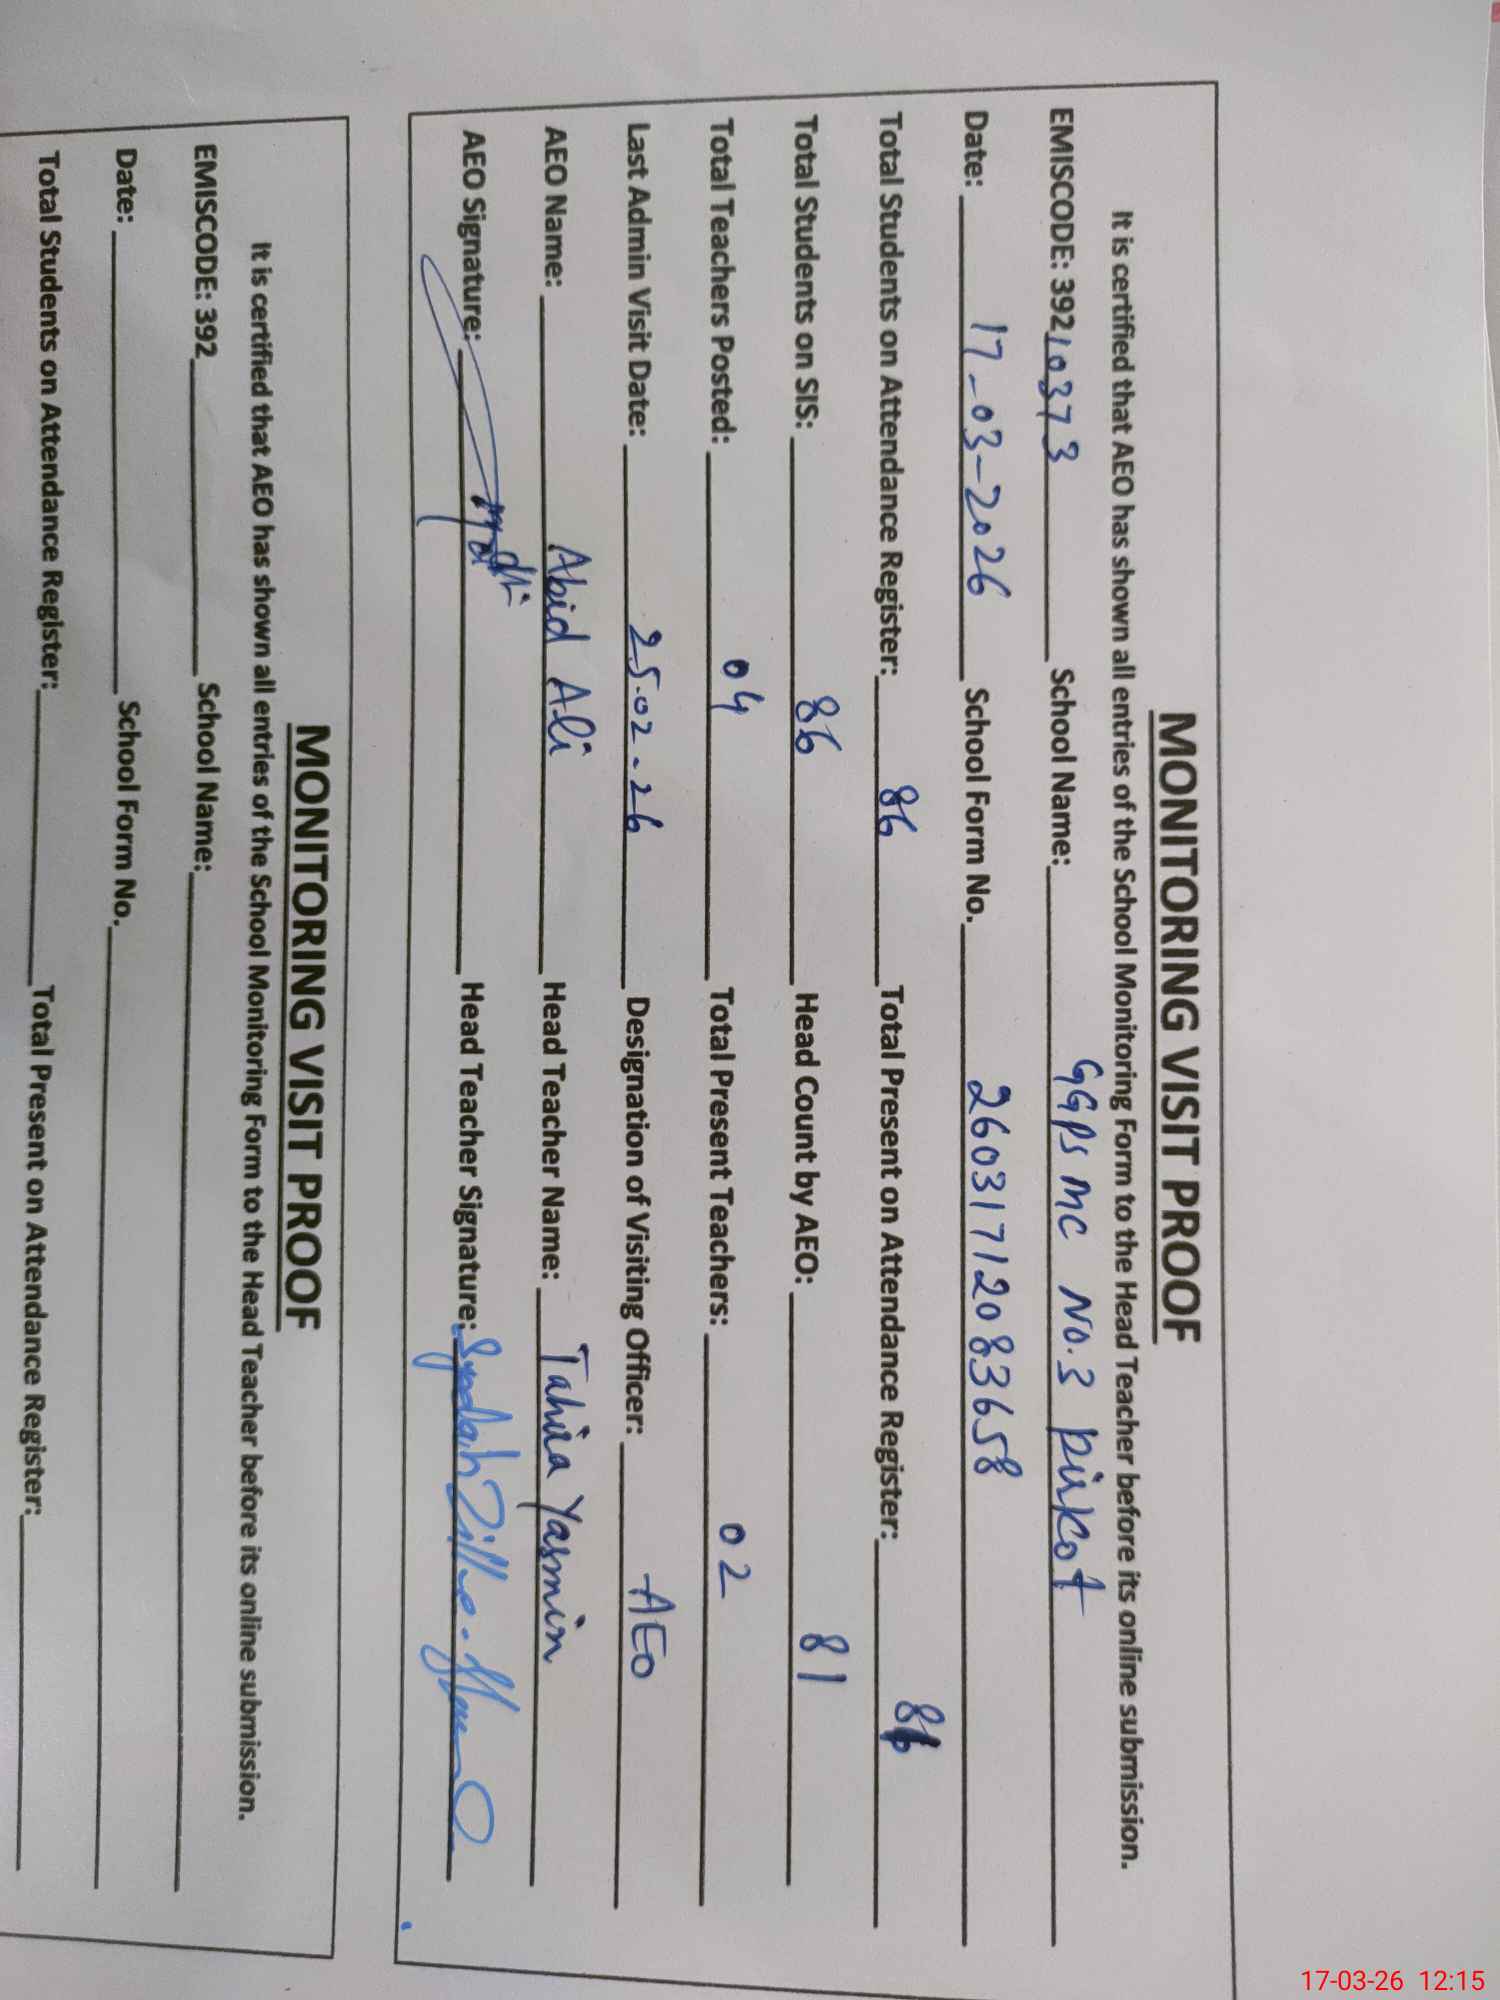 MONITORING VISIT PROOF
It is certified that AEO has shown all entries of the School Monitoring Form to the Head Teacher before its online submission.
EMISCODE: 39210373 School Name: GGPS MC No.3 Pirkot
Date: 17-03-2026 School Form No. 26031712083658
Total Students on Attendance Register: 86 Total Present on Attendance Register: 86
Total Students on SIS: 86 Head Count by AEO: 81
Total Teachers Posted: 04 Total Present Teachers: 02
Last Admin Visit Date: 25.02-26 Designation of Visiting Officer: AEO
AEO Name: Abid Ali Head Teacher Name: Tahira Yasmin
AEO Signature: Head Teacher Signature:
MONITORING VISIT PROOF
It is certified that AEO has shown all entries of the School Monitoring Form to the Head Teacher before its online submission.
EMISCODE: 392 School Name:
Date: School Form No.
Total Students on Attendance Register: Total Present on Attendance Register:
17-03-26 12:15